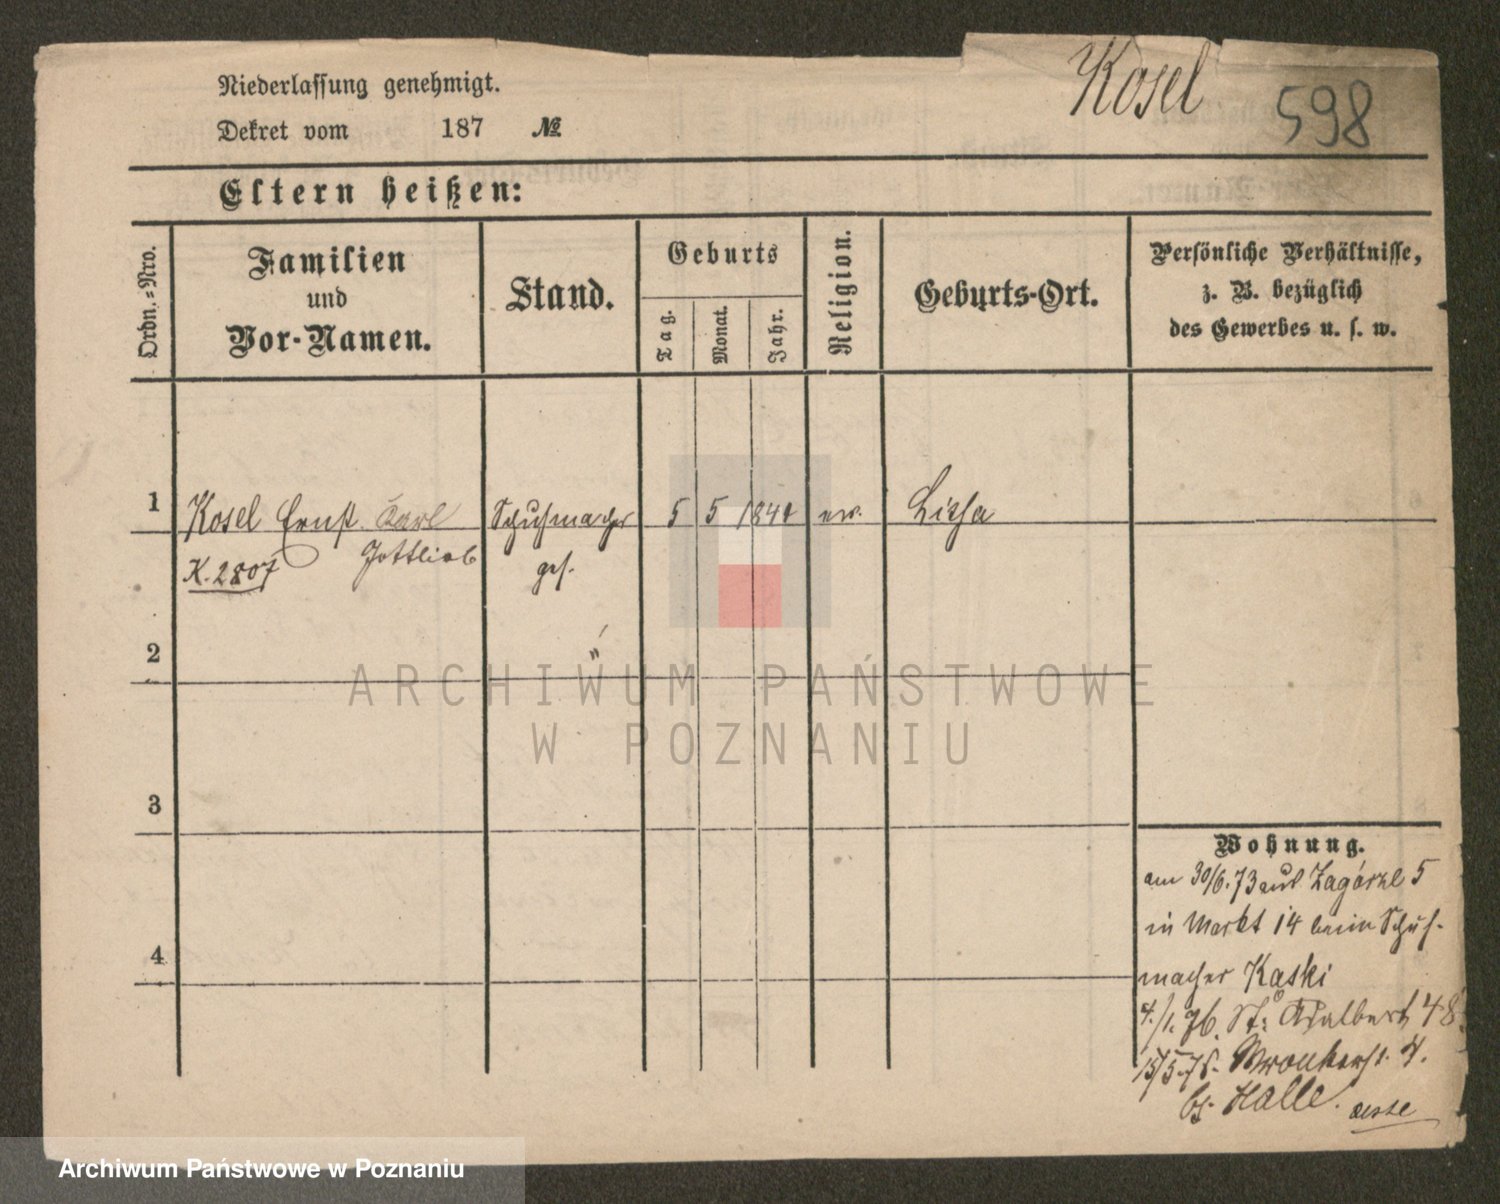 Niederlassung genehmigt.
Dekret vom 187 №
Kosel 598
Eltern heißen:
Ordn.=Nro.
Familien
und
Vor-Namen.
Stand.
Geburts
Tag.
Monat.
Jahr.
Religion.
Geburts-Ort.
Persönliche Verhältnisse,
z. B. bezüglich
des Gewerbes u. s. w.
1 Kosel Ernst Karl Schuhmacher 5 5 184 ev. Lissa
Gottlieb ges.
K. 2807
2 "
3
4
Wohnung.
am 30/6. 73 aus Zagórze 5
in Markt 14 beim Schuh-
macher Kaski
4./1. 76. St: Adalbert 48
15/5. 75. Wronkerst. 4.
bs. Halle.
ARCHIWUM PAŃSTWOWE
W POZNANIU
Archiwum Państwowe w Poznaniu